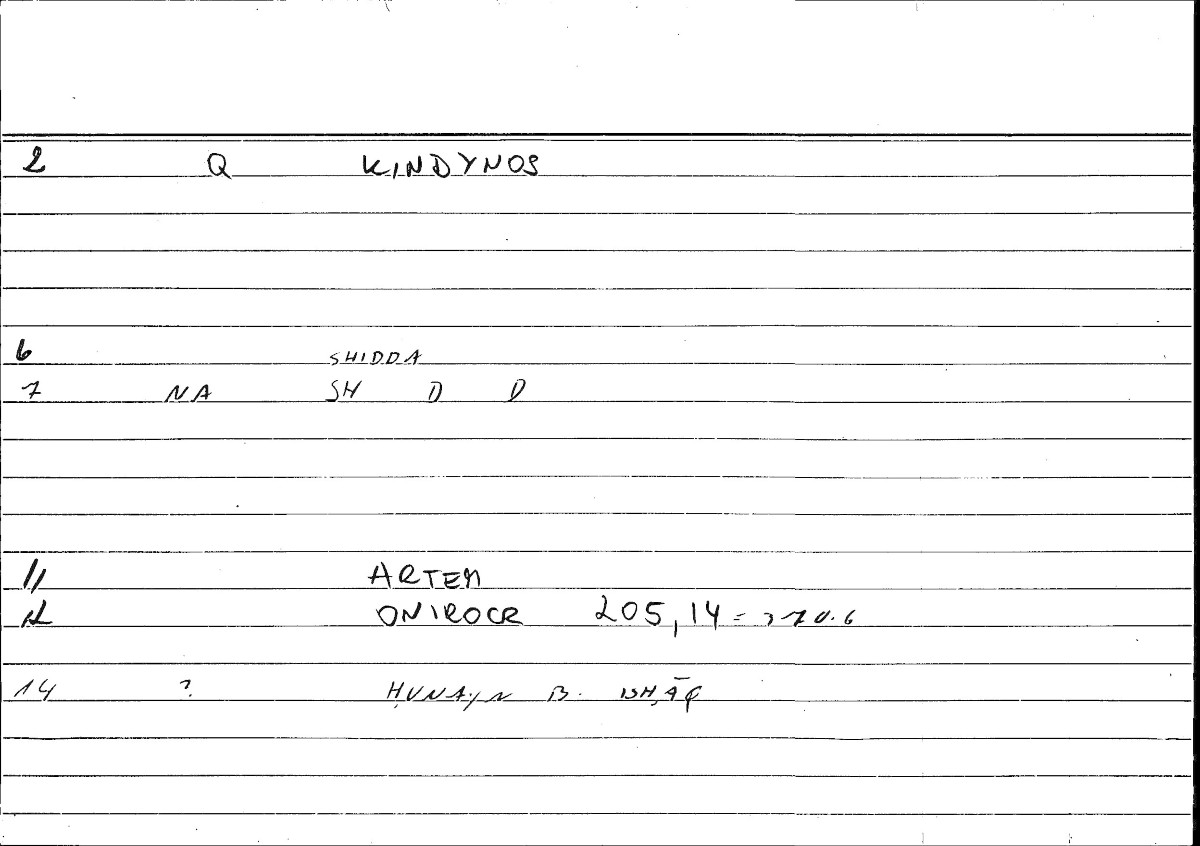 2 Q KINDYNOS
6 SHIDDA
7 NA SH D D
11 ARTEM
12 ONIROCR 205,14 =
14 ? ḤUNAYN B. ISḤĀQ